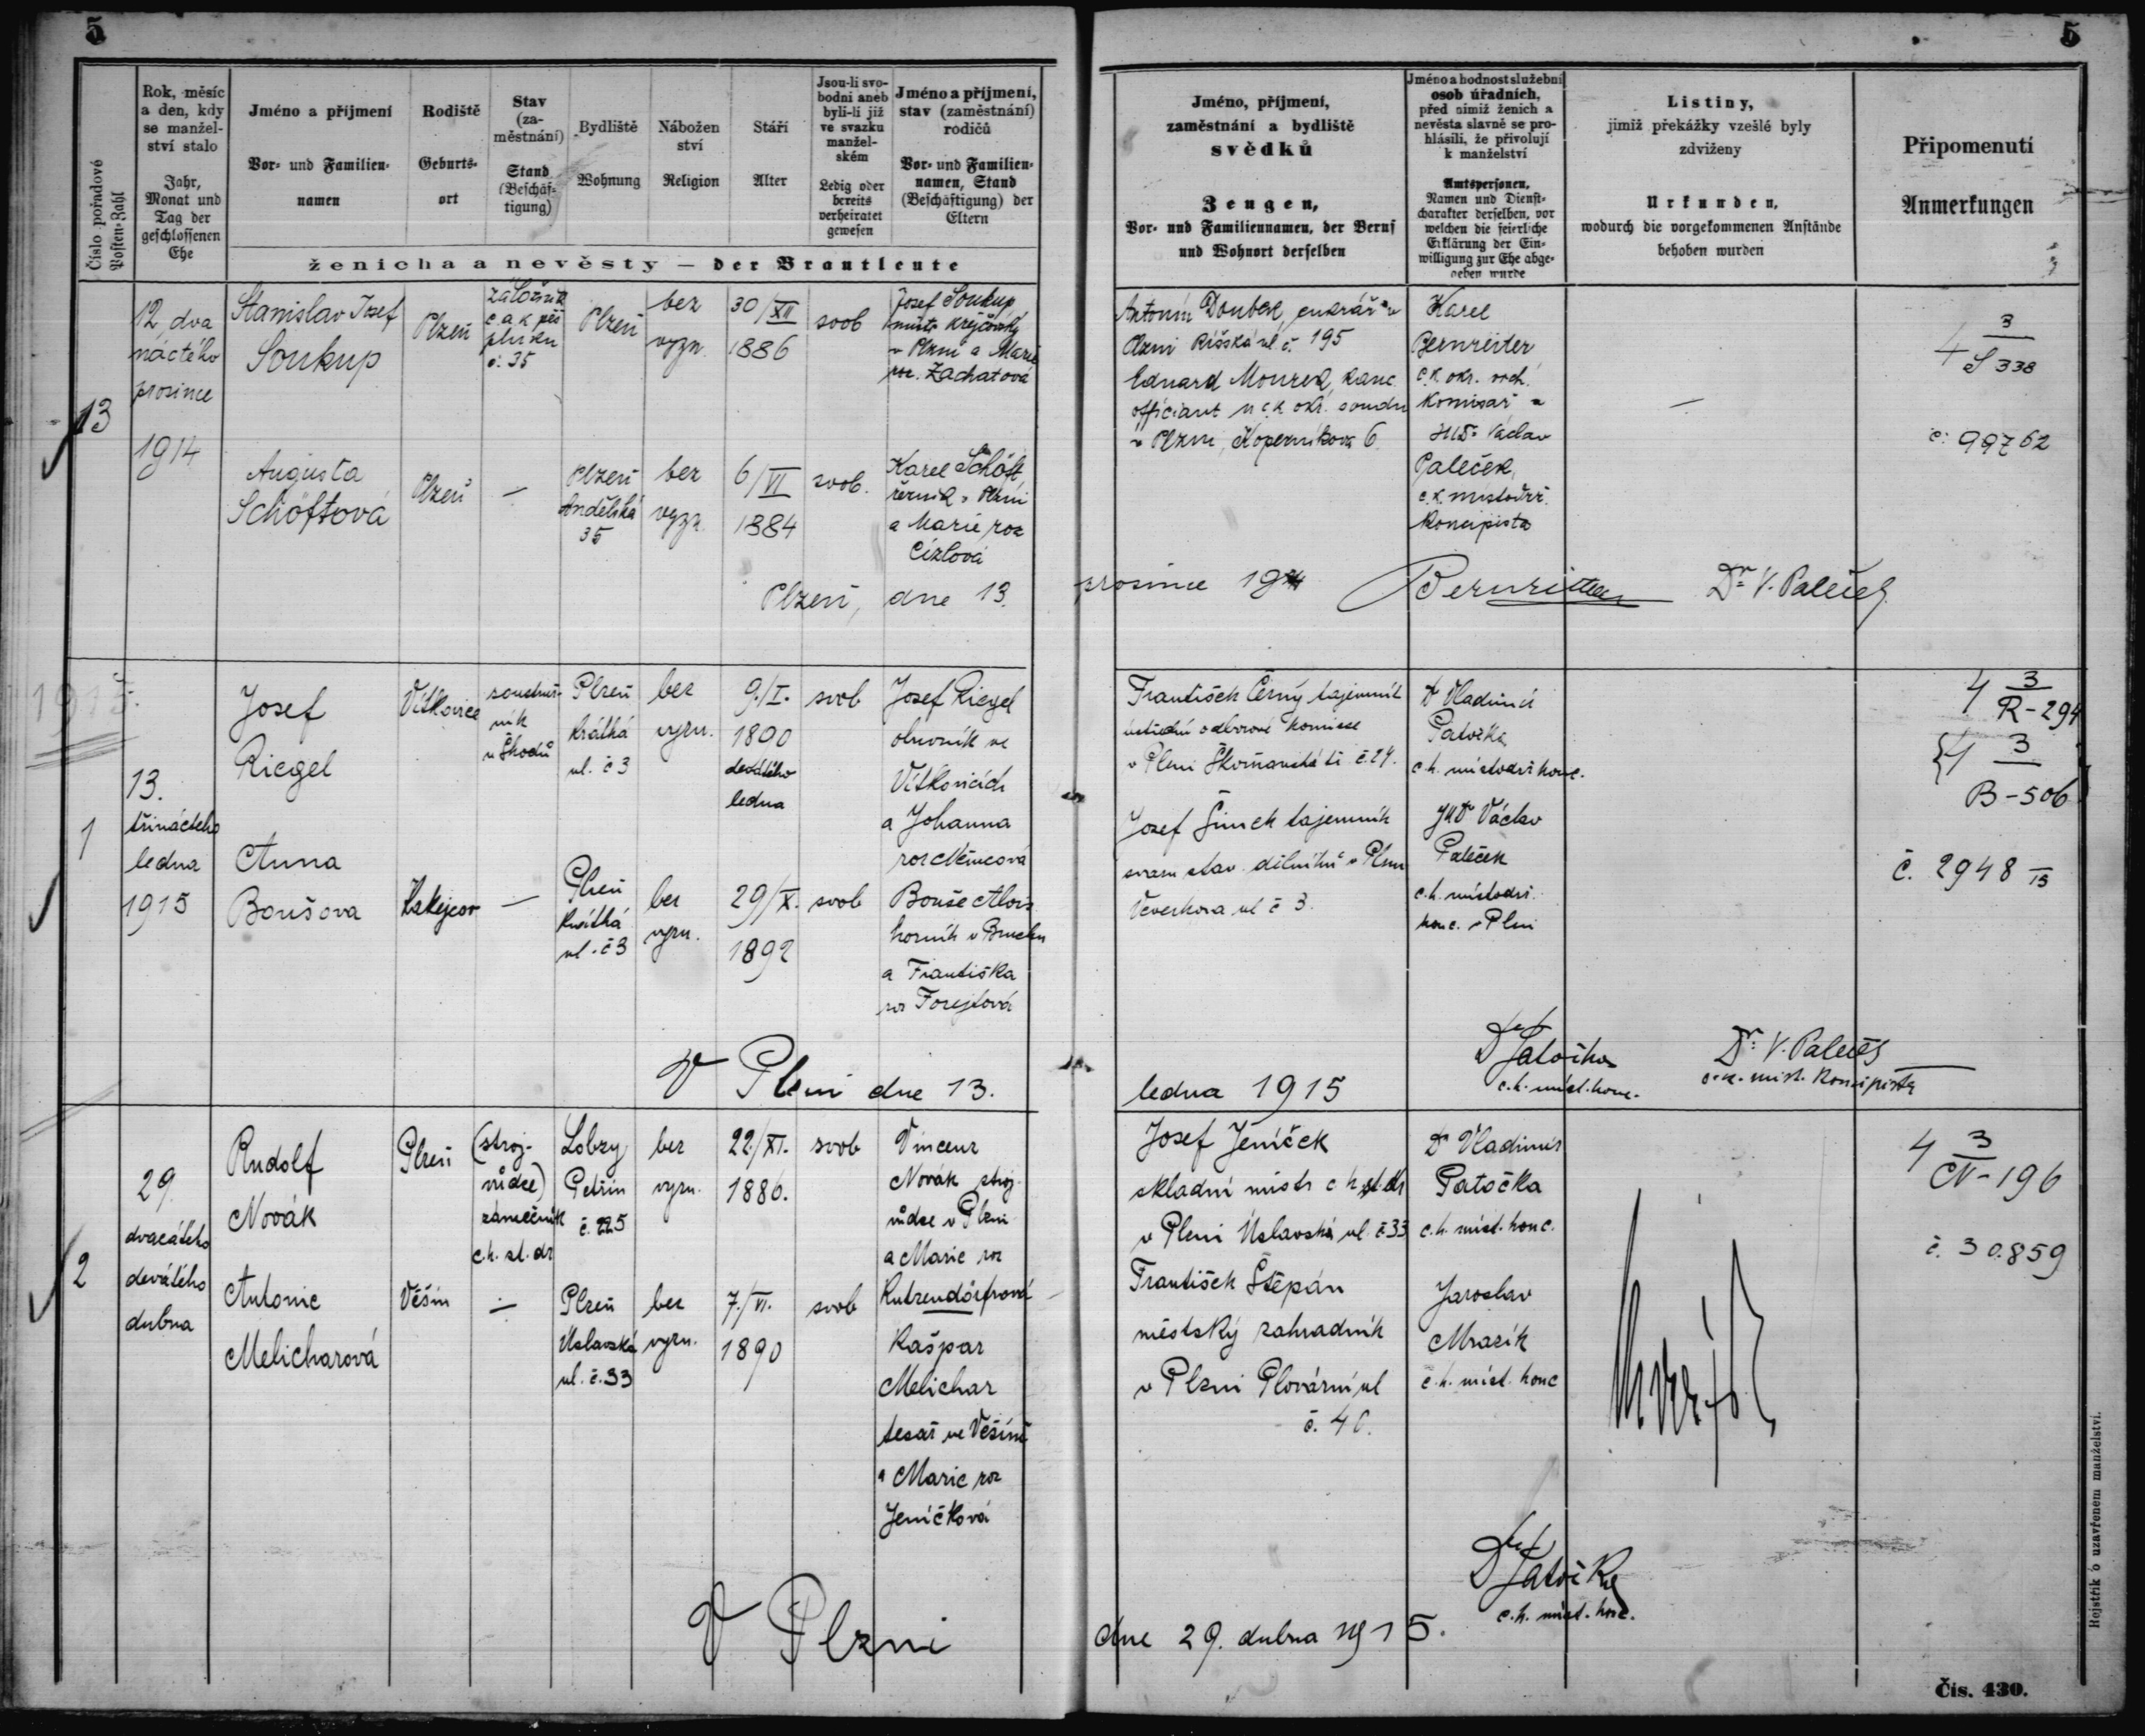 5
Číslo pořadové
Posten-Zahl
Rok, měsíc
a den, kdy
se manžel-
ství stalo
Jahr,
Monat und
Tag der
geschlossenen
Ehe
Jméno a příjmení
Vor- und Familien-
namen
Rodiště
Geburts-
ort
Stav
(za-
městnání)
Stand
(Beschäf-
tigung)
Bydliště
Wohnung
Nábožen
ství
Religion
Stáří
Alter
Jsou-li svo-
bodni aneb
byli-li již
ve svazku
manžel-
ském
Ledig oder
bereits
verheiratet
gewesen
Jméno a příjmení,
stav (zaměstnání)
rodičů
Vor- und Familien-
namen, Stand
(Beschäftigung) der
Eltern
ženicha a nevěsty — der Brautleute
13
12 dva
náctého
prosince
1914
Stanislav Josef
Soukup
Plzeň
záložník
c. a k. pěš
pluku
č. 35
Plzeň
bez
vyzn.
30/XII
1886
svob
Josef Soukup
mistr krejčovský
v Plzni a Marie
roz. Zachatová
Augusta
Schöftová
Plzeň
—
Plzeň
Andělská
35
bez
vyzn.
6/VI
1884
svob.
Karel Schöft
řezník v Plzni
a Marie roz
Cízlová
Plzeň, dne 13.
1915.
1
13.
třináctého
ledna
1915
Josef
Riegel
Vítkovice
soustruž-
ník
u Škodů
Plzeň
Krátká
ul. č 3
bez
vyzn.
9./I.
1890
devátého
ledna
svob
Josef Riegel
obuvník ve
Vítkovicích
a Johanna
roz Němcová
Anna
Boušova
—
Plzeň
Krátká
ul. č 3
bez
vyzn.
29/X.
1892
svob
Bouše Alois
horník v Bruchu
a Františka
roz Forejtová
V Plzni dne 13.
2
29.
dvacátého
devátého
dubna
Rudolf
Novák
Plzeň
(stroj-
vůdce)
zámečník
c.k. st. dr
Lobzy
Petřín
č. 225
bez
vyzn.
22./XI.
1886.
svob
Vincenc
Novák stroj
vůdce v Plzni
a Marie roz
Kutzendörfrová
Antonie
Melicharová
Věšín
—
Plzeň
Úslavská
ul. č. 33
bez
vyzn.
7./VI.
1890
svob
Kašpar
Melichar
tesař ve Věšíně
a Marie roz
Jeníčková
V Plzni
5
Jméno, příjmení,
zaměstnání a bydliště
svědků
Zeugen,
Vor- und Familiennamen, der Beruf
und Wohnort derselben
Jméno a hodnost služební
osob úřadních,
před nimiž ženich a
nevěsta slavně se pro-
hlásili, že přivolují
k manželství
Amtspersonen,
Namen und Dienst-
charakter derselben, vor
welchen die feierliche
Erklärung der Ein-
willigung zur Ehe abge-
geben wurde
Listiny,
jimiž překážky vzešlé byly
zdviženy
Urkunden,
wodurch die vorgekommenen Anstände
behoben wurden
Připomenutí
Anmerkungen
Antonín Doubek, cukrář v
Plzni Říšská ul. č. 195
Eduard Mourek, kanc.
officiant u c.k. okr. soudu
v Plzni, Koperníkova 6
Karel
Bernreiter
c.k. okr. vrch.
komisař a
JUDr Václav
Paleček,
c.k. místodrž.
koncipista
—
4 3/S 338
č: 99762
prosince 1914 Bernreiter Dr. V. Paleček
František Černý tajemník
ústřední odborové komisse
v Plzni Škorňanská tř. č. 24.
Josef Šimek tajemník
svazu stav. dělníků v Plzni
Veverkova ul č 3.
Dr Vladimír
Patočka
c.k. místodrž konc.
JUDr Václav
Paleček
c.k. místodrž.
konc. v Plzni
4 3/R-294
4 3/B-506
č. 2948/15
ledna 1915
Dr Patočka
c.k. míst. konc.
Dr. V. Paleček
c.k. míst. koncipista
Josef Jeníček
skladní mistr c.k. st. dr
v Plzni Úslavská ul. č 33
František Štěpán
městský zahradník
v Plzni Plovární ul
č. 40.
Dr Vladimír
Patočka
c.k. míst. konc.
Jaroslav
Mrazík
c.k. míst. konc
Mrazík
4 3/N-196
č. 30.859
Dr Patočka
c.k. míst. konc.
dne 29. dubna 1915.
Rejstřík o uzavřenem manželství.
Čís. 430.